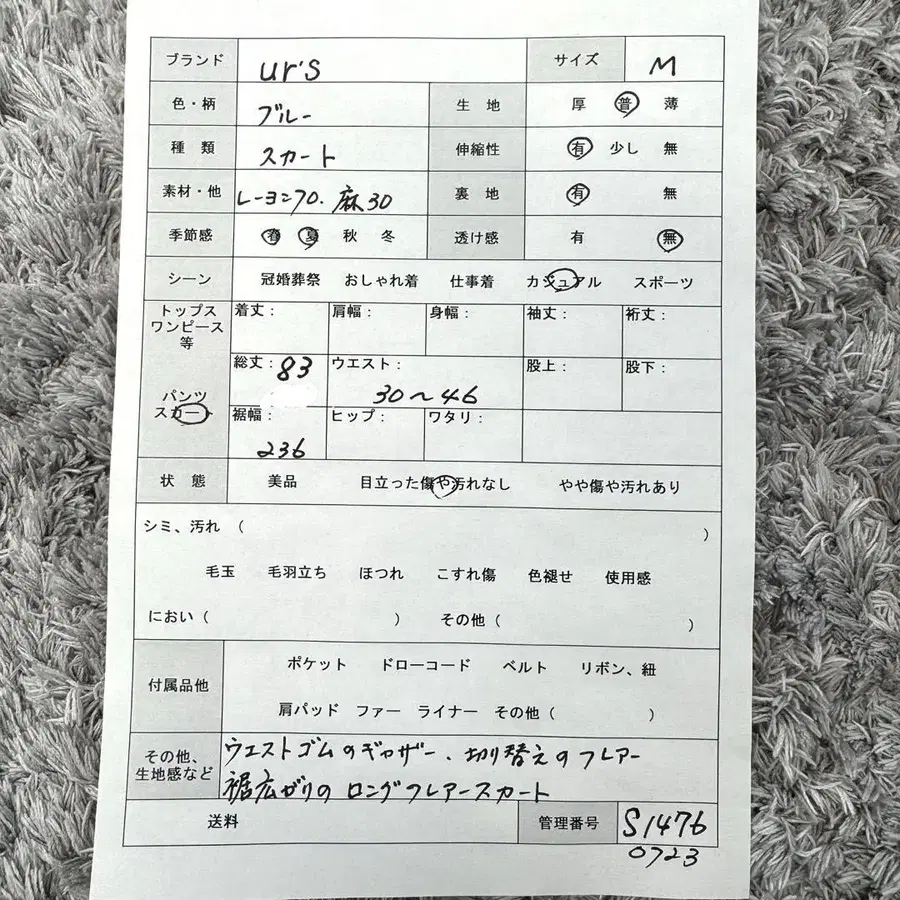 ブランド ur's サイズ M
色・柄 ブルー 生地 厚 普 薄
種類 スカート 伸縮性 有 少し 無
素材・他 レーヨン70. 麻30 裏地 有 無
季節感 春 夏 秋 冬 透け感 有 無
シーン 冠婚葬祭 おしゃれ着 仕事着 カジュアル スポーツ
トップス
ワンピース
等
着丈： 肩幅： 身幅： 袖丈： 裄丈：
パンツ
スカート
総丈：83 ウエスト： 30～46 股上： 股下：
裾幅： 236 ヒップ： ワタリ：
状態 美品 目立った傷や汚れなし やや傷や汚れあり
シミ、汚れ（ ）
毛玉 毛羽立ち ほつれ こすれ傷 色褪せ 使用感
におい（ ） その他（ ）
付属品他 ポケット ドローコード ベルト リボン、紐
肩パッド ファー ライナー その他（ ）
その他、
生地感など
ウエストゴムのギャザー、切り替えのフレアー
裾広がりの ロングフレアースカート
送料 管理番号 S1476
0723